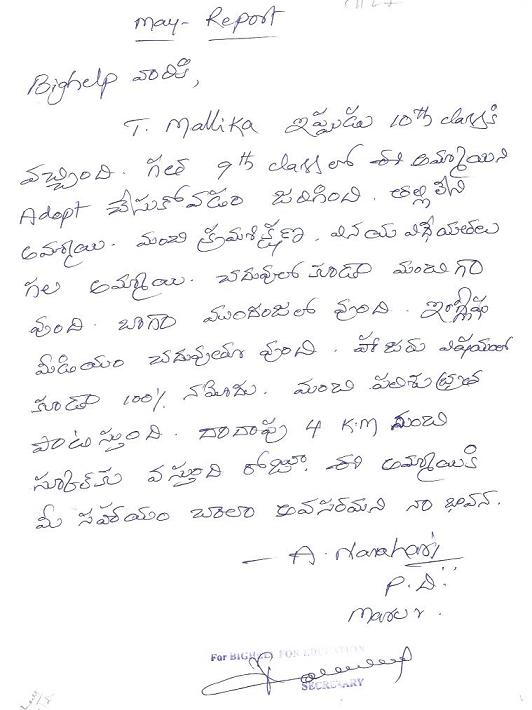 May - Report
Bighelp వారికి,
T. Mallika ఇప్పుడు 10th classకి
వచ్చింది. గత 9th class లో ఈ అమ్మాయిని
Adopt చేసుకోవడం జరిగింది. తల్లి లేని
అమ్మాయి. మంచి క్రమశిక్షణ, వినయ విధేయతలు
గల అమ్మాయి. చదువులో కూడా మంచిగా
వుంది. బాగా ముందంజలో వుంది. ఇంగ్లీషు
మీడియం చదువుతూ వుంది. హాజరు విషయంలో
కూడా 100% నమోదు. మంచి పరిశుభ్రత
పాటిస్తుంది. దాదాపు 4 K.M నుంచి
స్కూల్‌కు వస్తుంది రోజూ. ఈ అమ్మాయికి
మీ సహాయం చాలా అవసరమని నా భావన.
— A. Narahari
P.D.
For BIGHELP FOR EDUCATION
SECRETARY